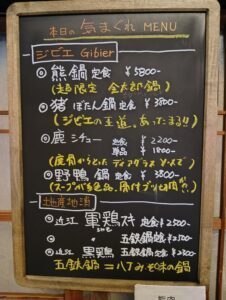 本日の気まぐれ MENU
ジビエ Gibier
◎熊鍋 定食 ¥5800-
(超限定 金太郎鍋)
◎猪 ぼたん鍋 定食 ¥3800-
(ジビエの王道、あったまる!!)
◎鹿 シチュー 定食 ¥2200-
単品 ¥1800-
(鹿骨からとった ソース)
◎野鴨 鍋 定食 ¥3800-
(スープが絶品、骨付
地産地消
◎近江 軍鶏 定食 ¥2500-
しゃも
〃 五鉄鍋定食 ¥2500
◎近江 黒鶏 五鉄鍋定食 ¥2300
五鉄鍋=八丁みそ味の鍋